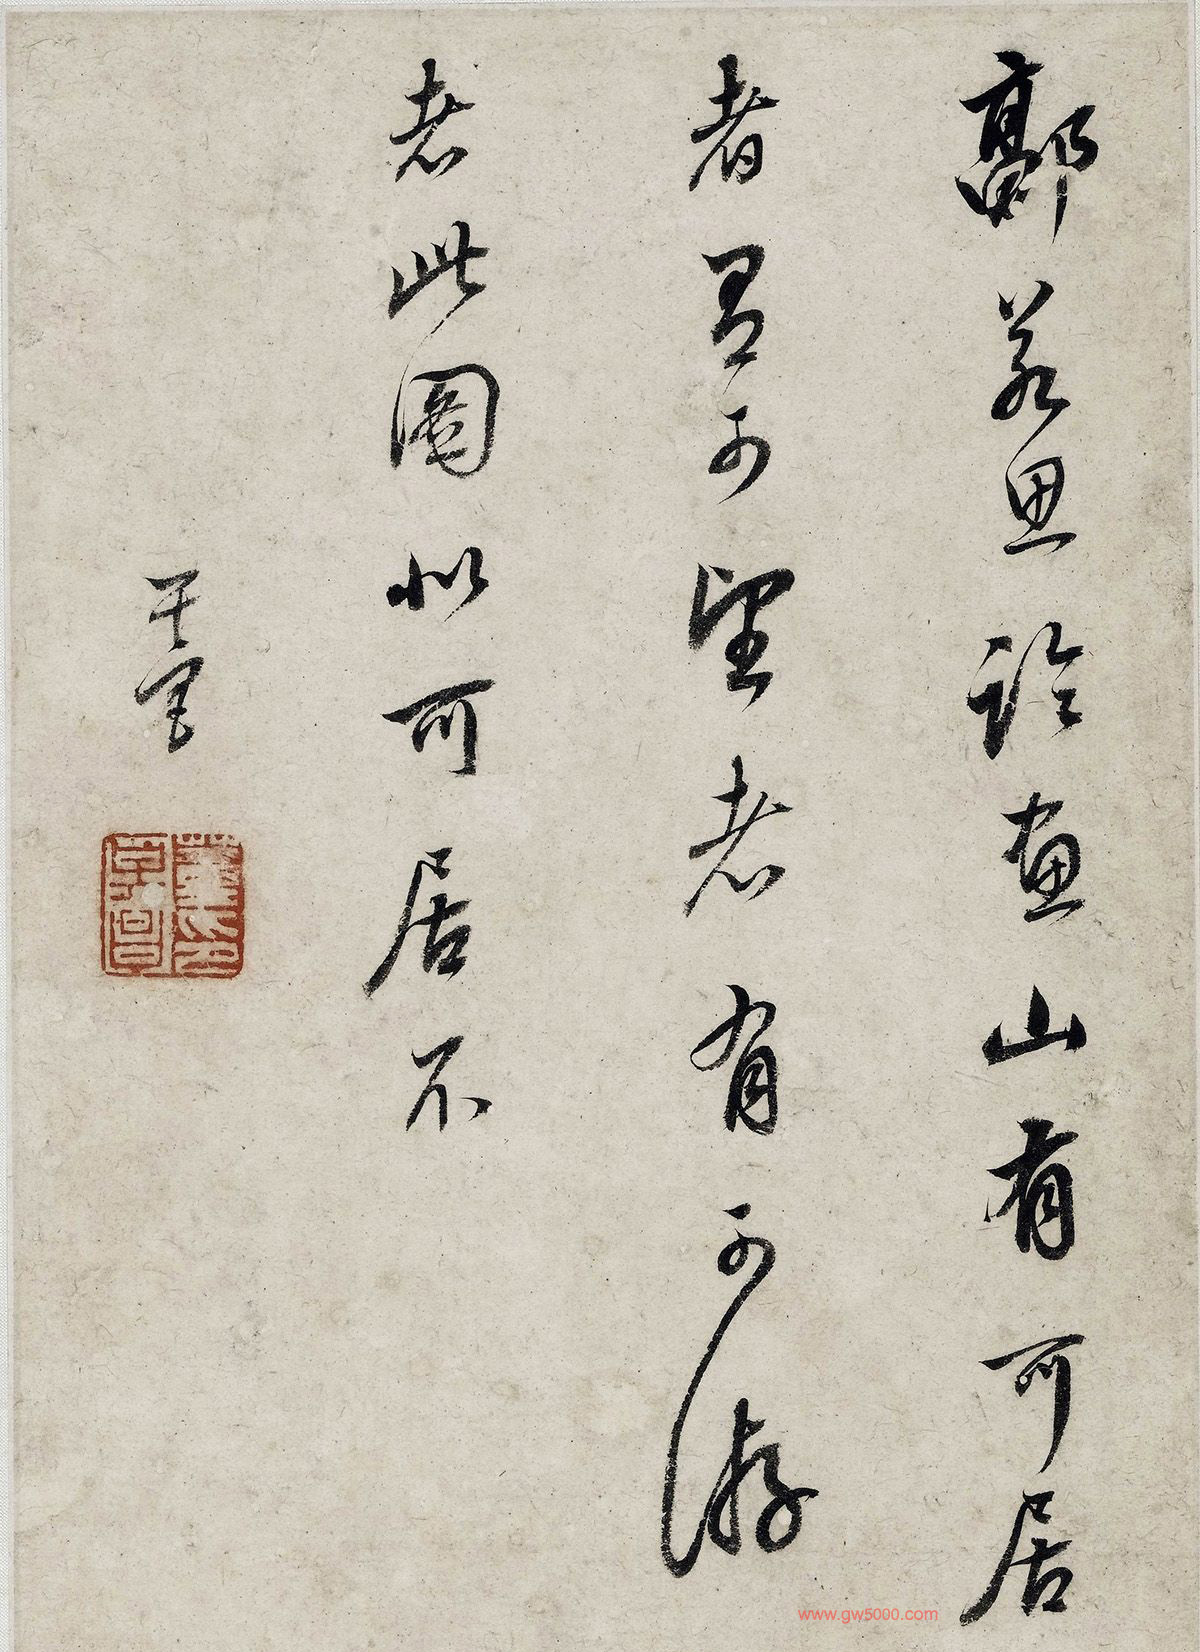 郭若思論畫山有可居
者有可望者有可游
者此圖似可居不
玄宰
董氏玄宰
www.gw5000.com